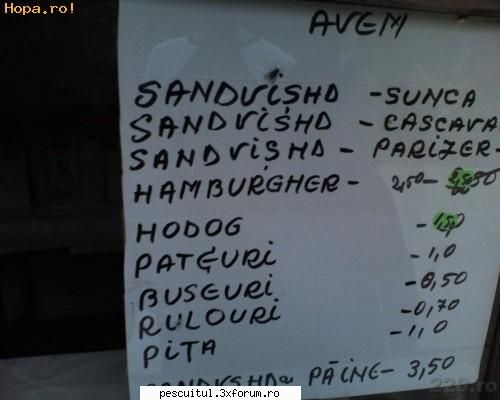 Hopa.ro!
AVEM
SANDVIȘHD - SUNCA
SANDVIȘHD - CASCAVA
SANDVIȘHD - PARIZER-
HAMBURGHER - 2,50-
HODOG - 1,50
PATEURI - 1,0
BUSEURI - 0,50
RULOURI - 0,70
PIȚA - 1,0
PÂINE - 3,50
pescuitul.3xforum.ro